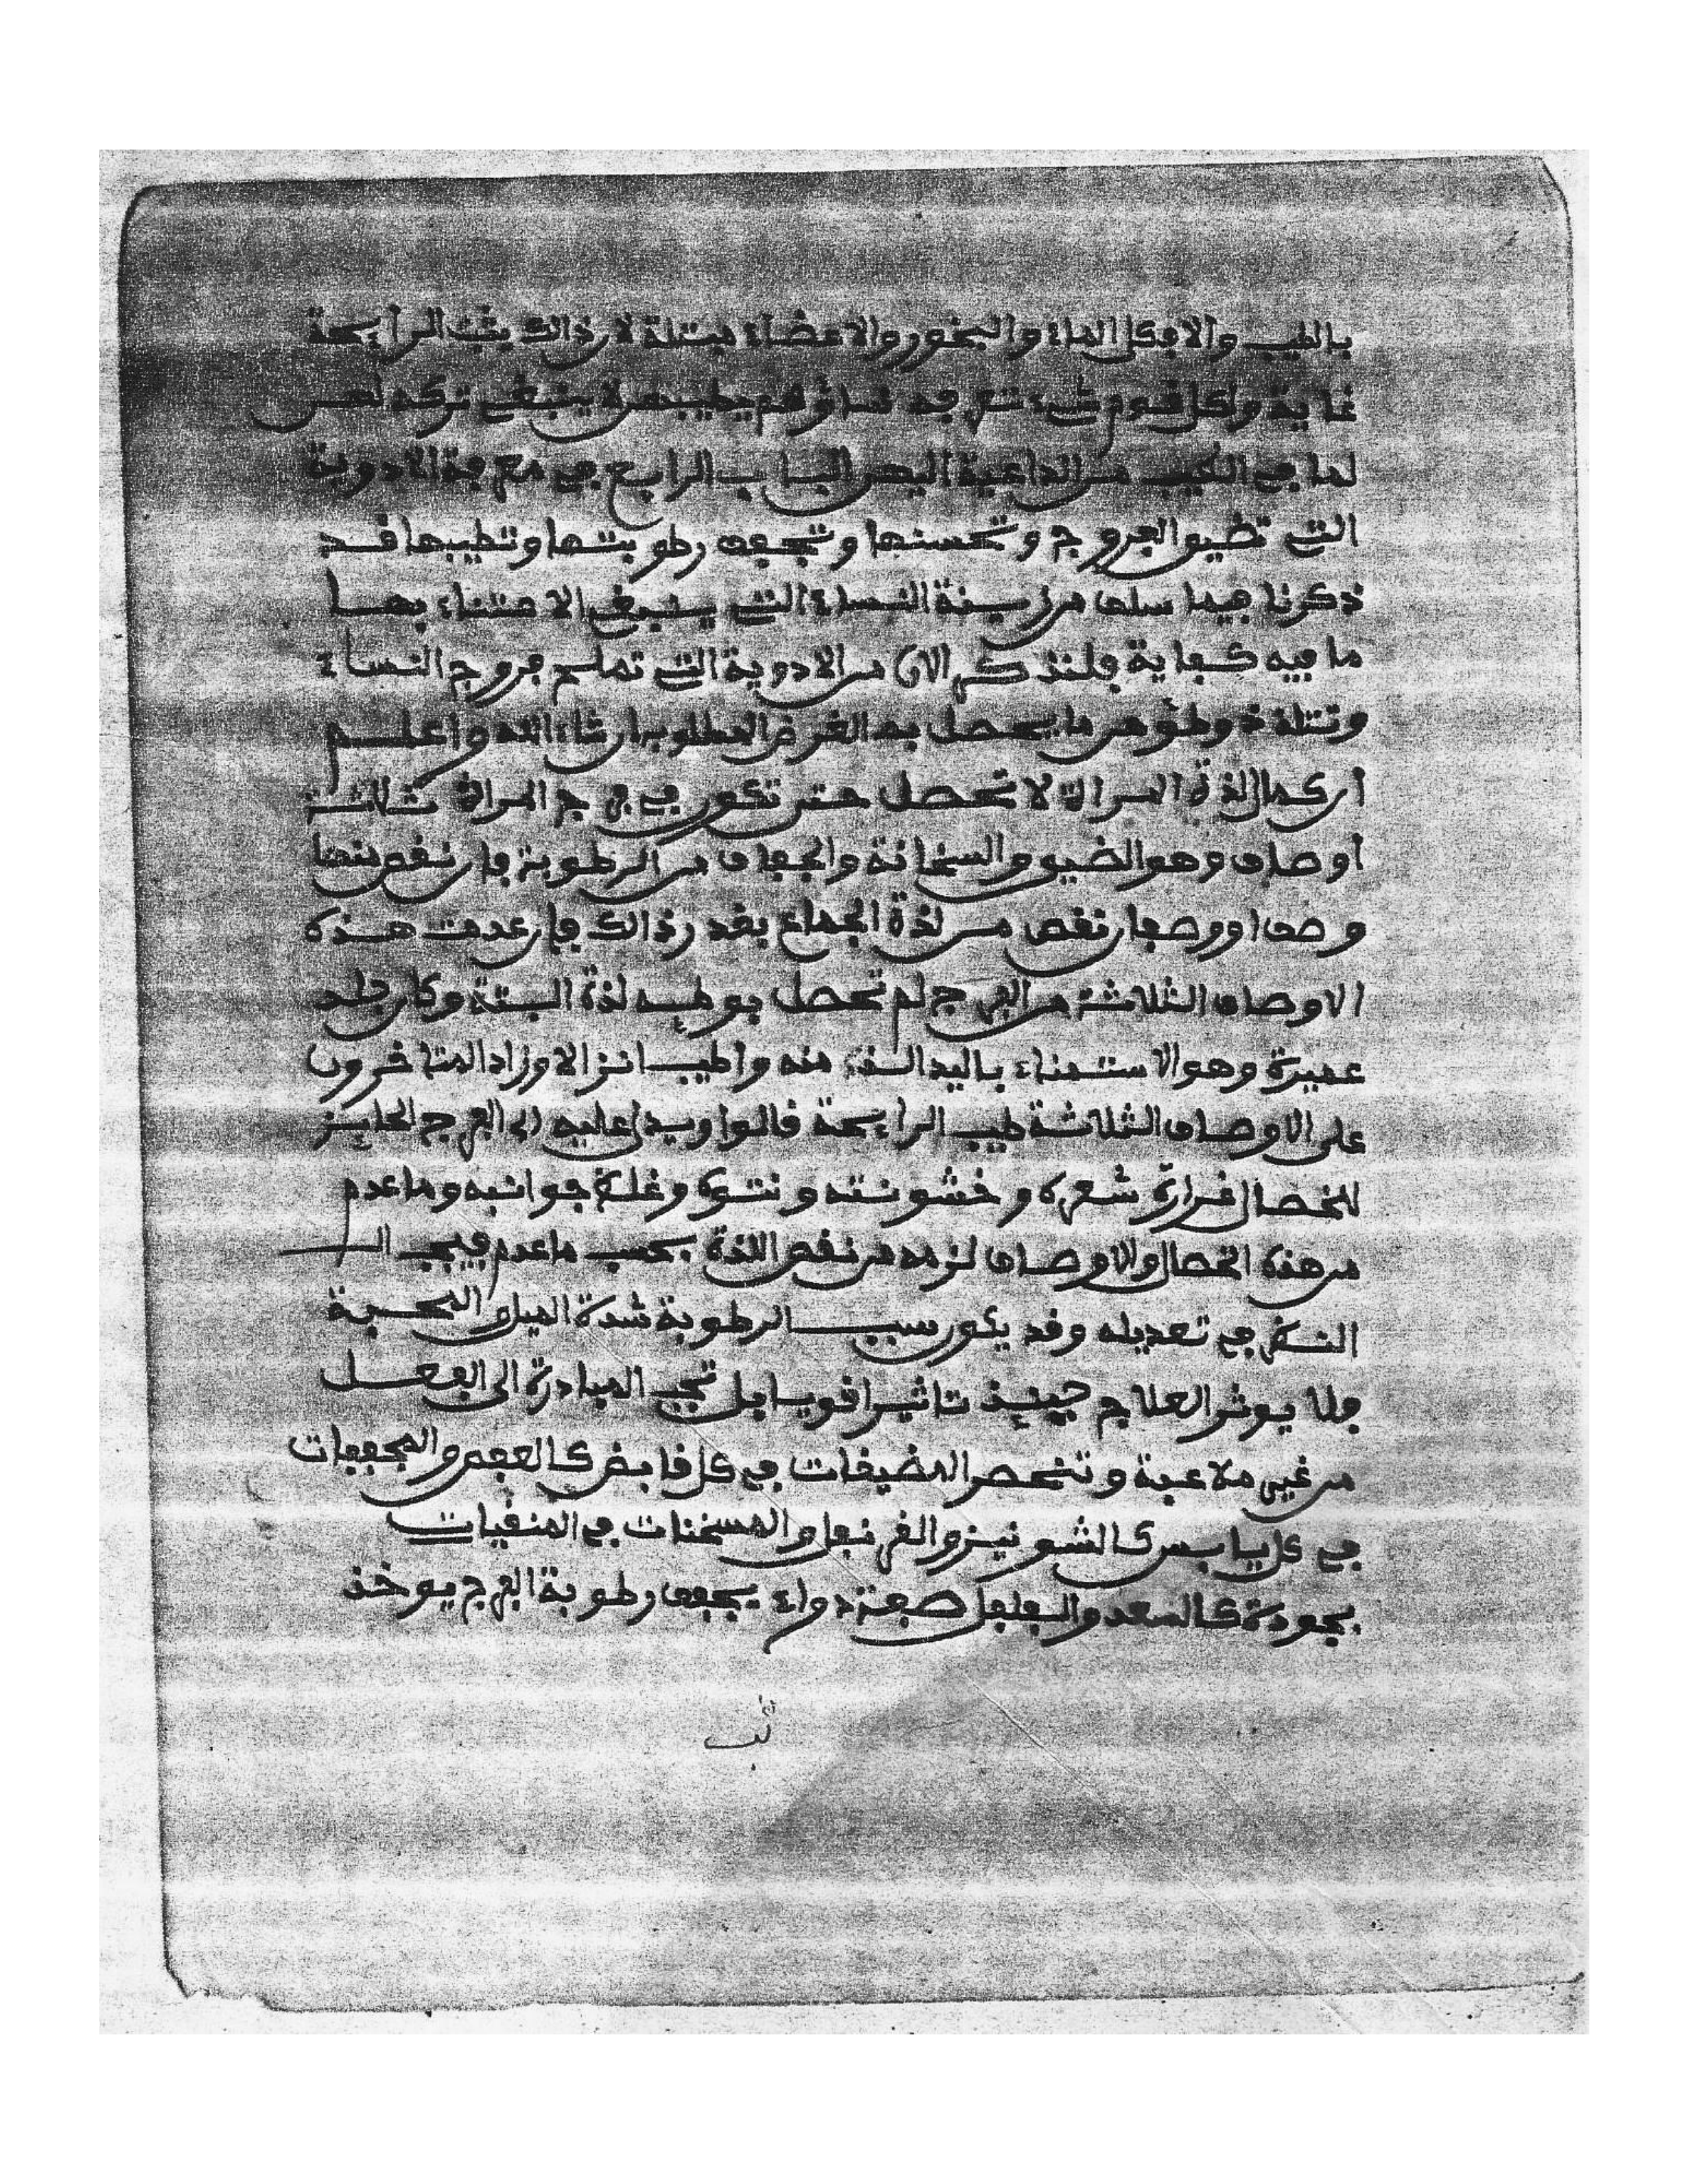 بالطيب والا فكل الماء والبخور والاعضاء مبتلة لان ذالك يثبت الرايحة
غاية ولكل قوم شيء تتعرف نساؤهم يطيبهن لا ينبغي تركه لهن
لما في الطيب من الداعية اليهن الباب الرابع في معرفة الادوية
التي تضيق الفروج وتحسنها وتجفف رطوبتها وتطيبها قد
ذكرنا فيما سلف من زينة النساء التي ينبغي الاعتناء بها
ما فيه كفاية فلنذكر الان من الادوية التي تصلح فروج النساء
وتلذذ وطؤهن ما يحصل به الغرض المطلوب ان شاء الله واعلم
ان كمال لذة المراة لا تحصل حتى تكون في فرج المراة ثلاثة
اوصاف وهو الضيق والسخانة والجفاف من الرطوبة فان نقص منها
وصف او وصفان نقص من لذة الجماع بقدر ذالك فان عدمت هذه
الاوصاف الثلاثة من الفرج لم تحصل بوطيه لذة البتة وكان جلد
عميرة وهو الاستمناء باليد الذ منه واطيب انزالا وزاد المتاخرون
على الاوصاف الثلاثة طيب الرايحة قالوا ويدل عليه ان الفرج الحايز
للخصال غزارة شعره وخشونته ونتوه وغلظ جوانبه وما عدم
من هذه الخصال والاوصاف لزمه من نقص اللذة بحسب ما عدم فيجب
النظر في تعديله وقد يكون سبب الرطوبة شدة الميل والمحبة
فلا يوثر العلاج حينيذ تاثيرا قويا بل تجب المبادرة الى الفعل
من غير ملاعبة وتنحصر المضيقات في كل قابض كالعفص والمجففات
في كل يابس كالشونيز والقرنفل والمسخنات في المنقيات
بجودة كالسعد والفلفل صفة دواء يجفف رطوبة الفرج يوخذ